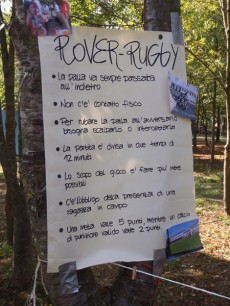 ROVER-RUGBY
• La palla va sempre passata
all'indietro
• Non c'è contatto fisico
• Per rubare la palla all'avversario
bisogna scalparlo o intercettarla
• La partita è divisa in due tempi da
12 minuti
• Lo scopo del gioco è fare più mete
possibili
• C'è l'obbligo della presenza di una
ragazza in campo
• Una meta vale 5 punti, mentre un calcio
di punizione valido vale 2 punti.